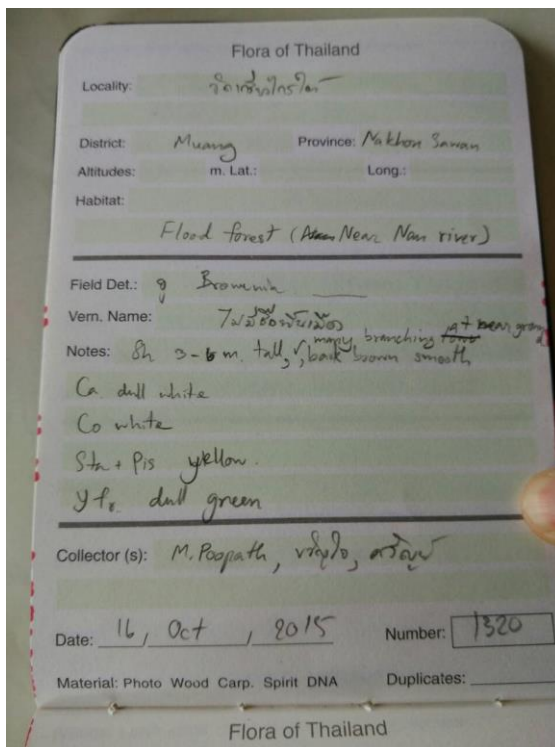 Flora of Thailand
Locality: วัดเกรียงไกรใต้
District: Muang Province: Nakhon Sawan
Altitudes: m. Lat.: Long.:
Habitat:
Flood forest (Near Nan river)
Field Det.:
Vern. Name: ไม่มีชื่อพื้นเมือง
Notes: Sh 3-6 m. tall, many branching at near ground
bark brown smooth
Ca dull white
Co white
Sta + Pis yellow.
y fr. dull green
Collector (s): M. Poopath,
Date: 16, Oct, 2015 Number: 1320
Material: Photo Wood Carp. Spirit DNA Duplicates:
Flora of Thailand